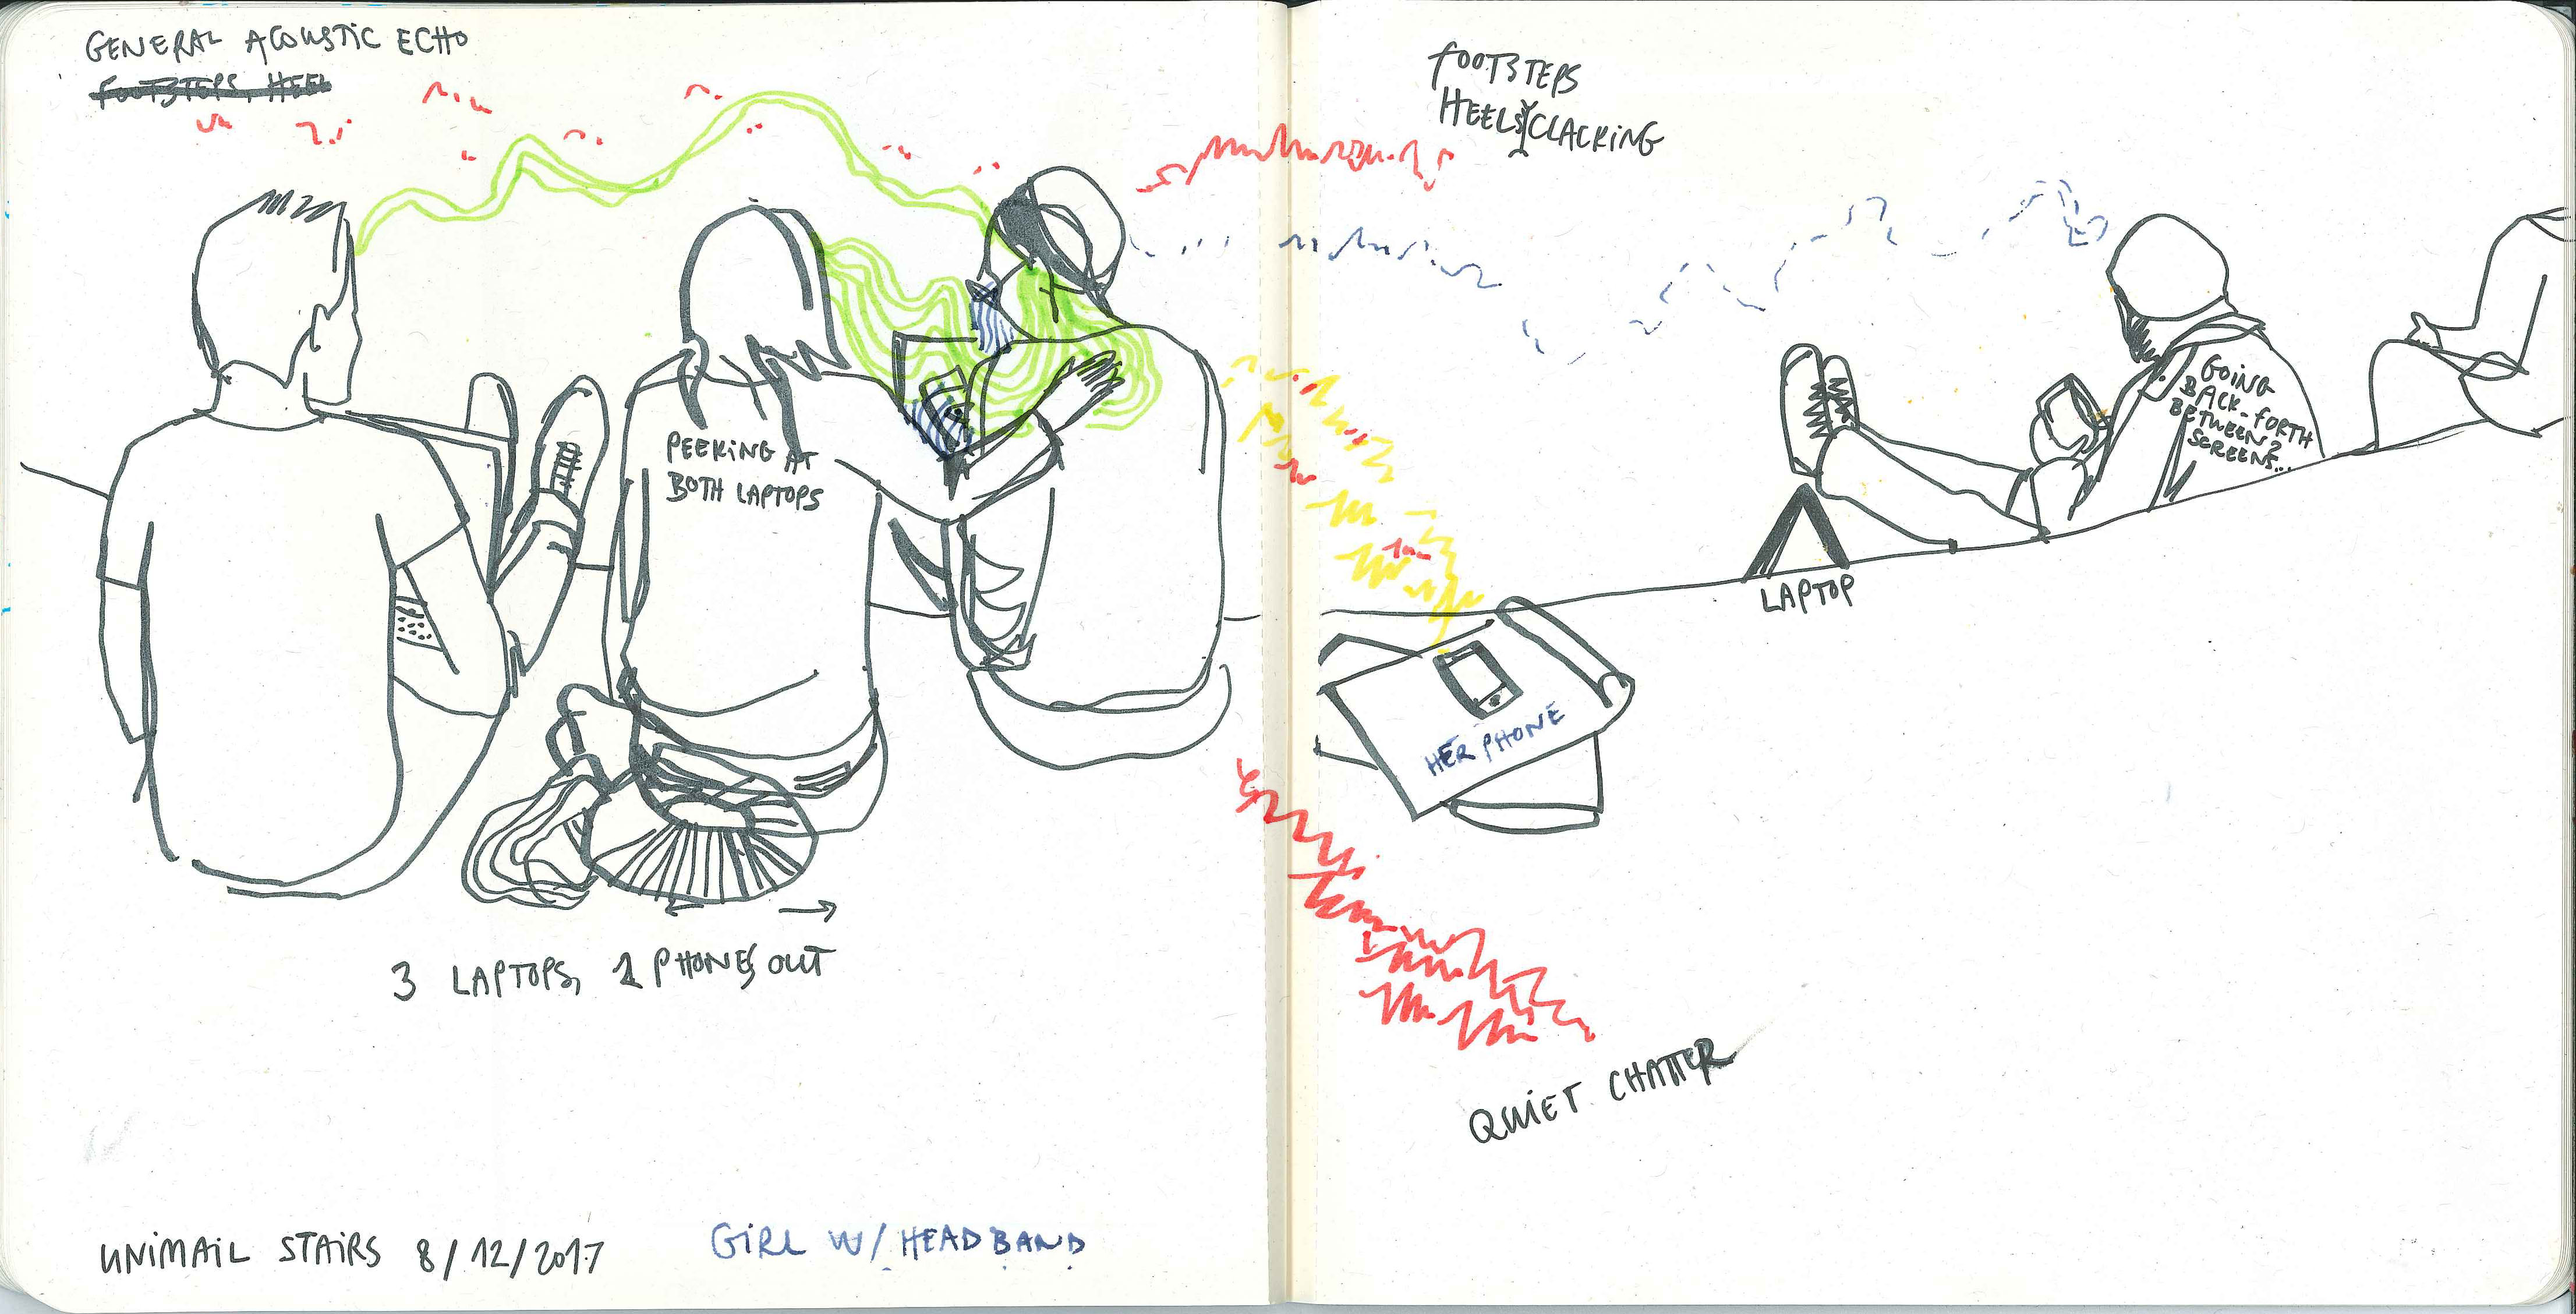 GENERAL ACOUSTIC ECHO
FOOTSTEPS, HEEL
FOOTSTEPS
HEELS CLACKING
PEEKING AT
BOTH LAPTOPS
GOING
BACK-FORTH
BETWEEN 2
SCREENS...
LAPTOP
HER PHONE
3 LAPTOPS, 2 PHONES OUT
QUIET CHATTER
UNIMAIL STAIRS 8/12/2017
GIRL W/ HEADBAND